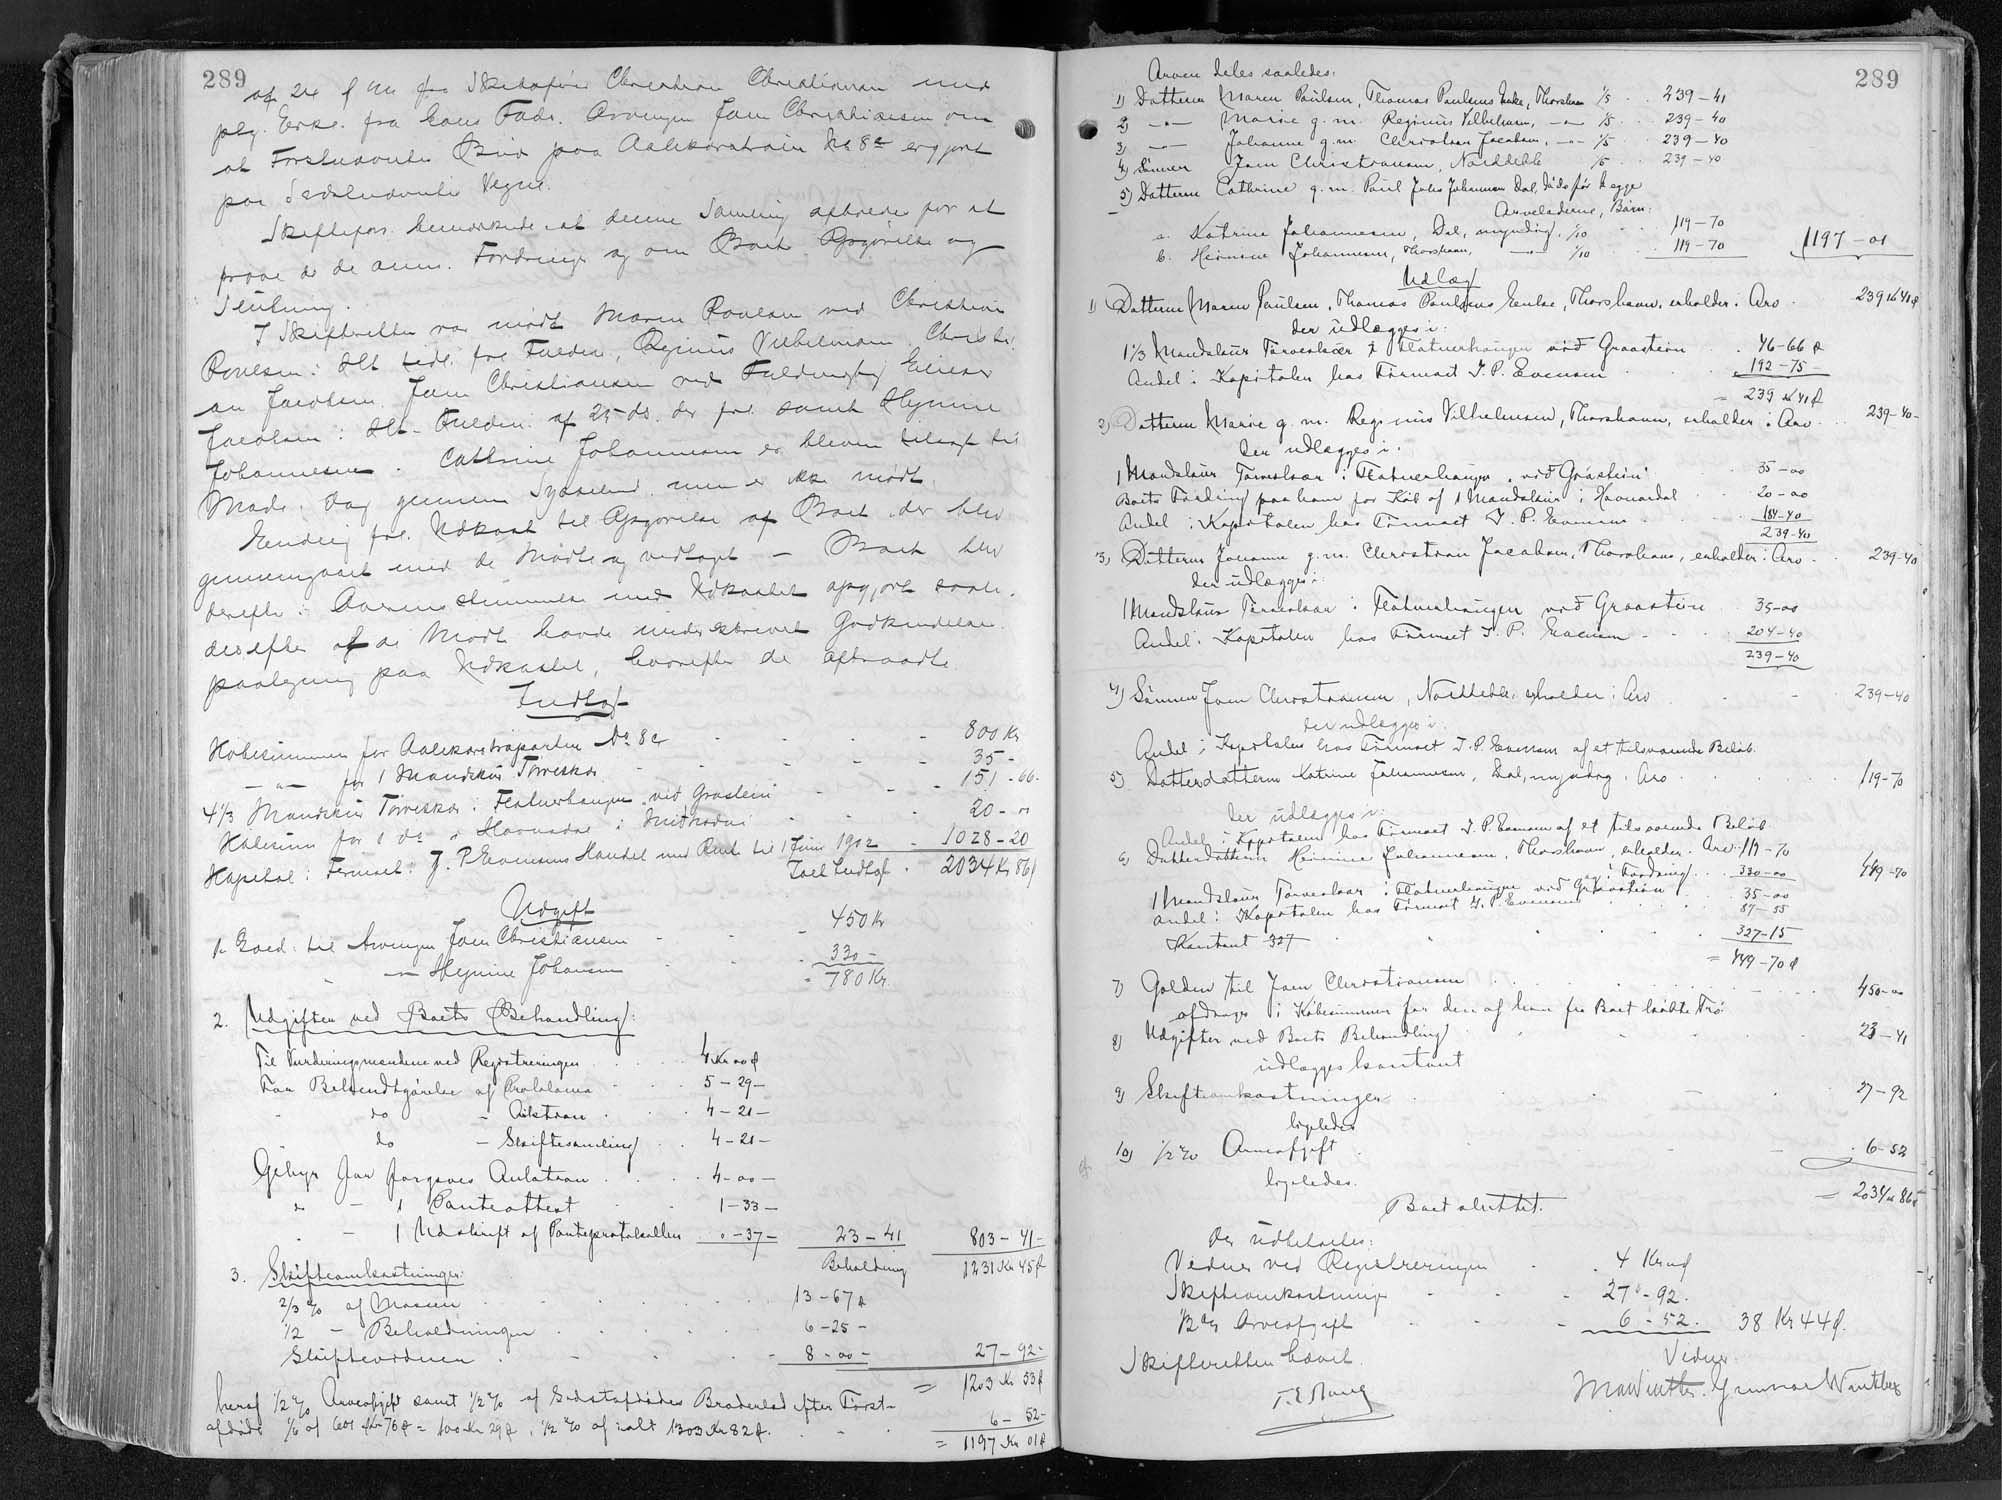 289
af 24 f. m. fra Skibsfører Christian Christiansen med
plg. Erkl. fra hans Fader Arvingen Joen Christiansen om
at Bud paa No 8c er gjort
paa Vegne.
Skiftefors. bemærkede, at denne Samling afholdes for at
prøve de anm. Fordringer og om Boets Opgørelse og
Slutning.
I Skifteretten var mødt Maren Poulsen ved Christian
Poulsen i Flg. Fuldm., Reginus Vilhelmsen, Christi-
an Jacobsen, Joen Christiansen ved Fuldmægtig Einar
Jacobsen i Flg. Fuldm. af 25 ds. der frl. samt
Johannesen. Cathrine Johannesen er bleven tilsagt til
Møde i Dag gennem Sysselmd. men er ikke mødt.
Endelig frl. Udkast til Opgørelse af Boet, der blev
gennemgaaet med de Mødte og vedtaget — Boet blev
derefter i Overensstemmelse med Udkastet opgjort saale-
des efter at de Mødte havde underskrevet Godkendelses-
paategning paa Udkastet, hvorefter de aftraadte.
Indtægt
Købesummen for No 8c - - - - 800 Kr
— " — for 1 Mandskur Tørveskær - - - - 35 -
4 1/3 Mandskur Tørveskær i Flatnerhaugen við Grastein - - - 151-66
Købesum for 1 do i Havnadal i - - - 20-00
Kapital i Firmaet J. P. Evensens Handel med Rent. til 1 Juni 1912 - 1028-20
Ialt Indtægt. 2034 Kr 86 ø
Udgift
1. Gæld: til Arvingen Joen Christiansen - - - 450 Kr
— " — Johannesen - - - 330 -
- 780 Kr.
2. Udgifter ved Boets Behandling:
Til Vurderingsmændene ved Registreringen . . . 4 Kr 00 ø
For Bekendtgørelse af Proklama . . . 5-29-
- do - Auktion . . . 4-21-
do - Skiftesamling . . 4-21-
Gebyr for forgæves Auktion . . . . 4-00-
" - 1 Panteattest 1-33-
- 1 Udskrift af Panteprotokollen 0-37- 23-41 803-41-
Beholdning 1231 Kr 45 ø
3. Skifteomkostninger:
2/3 % af Massen . . . . . 13-67 ø
1/2 - Beholdningen . . . . . 6-25-
Skifteordren . - - - 8-00- 27-92-
= 1203 Kr 53 ø
heraf 1/2 % Arveafgift samt 1/2 % af Sidstafdødes Broderlod efter Først-
afdøde 1/6 af 601 Kr 76 ø = 100 Kr 29 ø, 1/2 % af ialt 1303 Kr 82 ø. . . 6-52-
= 1197 Kr 01 ø
289
Arven deles saaledes:
1) Datteren Maren Paulsen, Thomas Paulsens Enke, Thorshavn 1/5 . . 239-41
2) — " — Marie g. m. Reginus Vilhelmsen, — " — 1/5 . . 239-40
3) — " — Johanne g. m. Christian Jacobsen, — " — 1/5 . . 239-40
4) Sønnen Joen Christiansen, Norddeble 1/5 . . 239-40
5) Datteren Cathrine g. m. Paul Johs Johannesen Dal, død før begge
Arveladerne, Børn:
a. Katrine Johannesen, Dal, myndig, 1/10 . . 119-70
b. Johannesen, Thorshavn, — " — 1/10 . . 119-70 1197-01
Udlæg
1) Datteren Maren Paulsen, Thomas Paulsens Enke, Thorshavn, erholder i Arv . 239 Kr 41 ø
der udlægges i:
1 1/3 Mandskur Tørveskær i Flatnerhaugen við Graastein . . 46-66 ø
Andel i Kapitalen hos Firmaet J. P. Evensen . . . 192-75-
= 239 Kr 41 ø
2) Datteren Marie g. m. Reginus Vilhelmsen, Thorshavn, erholder i Arv . . . 239-40-
der udlægges i:
1 Mandskur Tørveskær i Flatnerhaugen við Gråstein . . 35-00
Boets Fordring paa ham for Køb af 1 Mandskur i Havnardal . . 20-00
Andel i Kapitalen hos Firmaet J. P. Evensen . . . 184-40
239-40
3) Datteren Johanne g. m. Christian Jacobsen, Thorshavn, erholder i Arv . . 239-40
der udlægges i:
1 Mandskur Tørveskær i Flatnerhaugen við Graastein . 35-00
Andel i Kapitalen hos Firmaet J. P. Evensen - . . . 204-40
239-40
4) Sønnen Joen Christiansen, Norddeble, erholder i Arv . - - 239-40
der udlægges i:
Andel i Kapitalen hos Firmaet J. P. Evensen af et tilsvarende Beløb.
5) Datterdatteren Katrine Johannesen, Dal, myndig, i Arv . . . . . 119-70
der udlægges i:
Andel i Kapitalen hos Firmaet J. P. Evensen af et tilsvarende Beløb
6) Datterdatteren Johannesen, Thorshavn, erholder i Arv: 119-70
og i Fordring . . 330-00 449-70
1 Mandskur Tørveskær i Flatnerhaugen við Graastein . . 35-00
Andel i Kapitalen hos Firmaet J. P. Evensen . . . . 87-55
Kontant 327 . . . . . 327-15
= 449-70 ø
7) Gælden til Joen Christiansen . . . . . 450-00
afdrages i Købesummen for den af ham fra Boet købte
8) Udgifter ved Boets Behandling . . . . 23-41
udlægges kontant
9) Skifteomkostninger . . . - . 27-92
ligeledes
10) 1/2 % Arveafgift . . . - . 6-52
ligeledes.
= 2034 Kr 86 ø
Boet sluttet.
Der udbetales:
Vidner ved Registreringen . . 4 Kr 00 ø
Skifteomkostninger - - - 27-92.
1/2 % Arveafgift . . - 6-52. 38 Kr 44 ø.
Skifteretten hævet.
Vidner:
M. Winther. Gunnar Winther